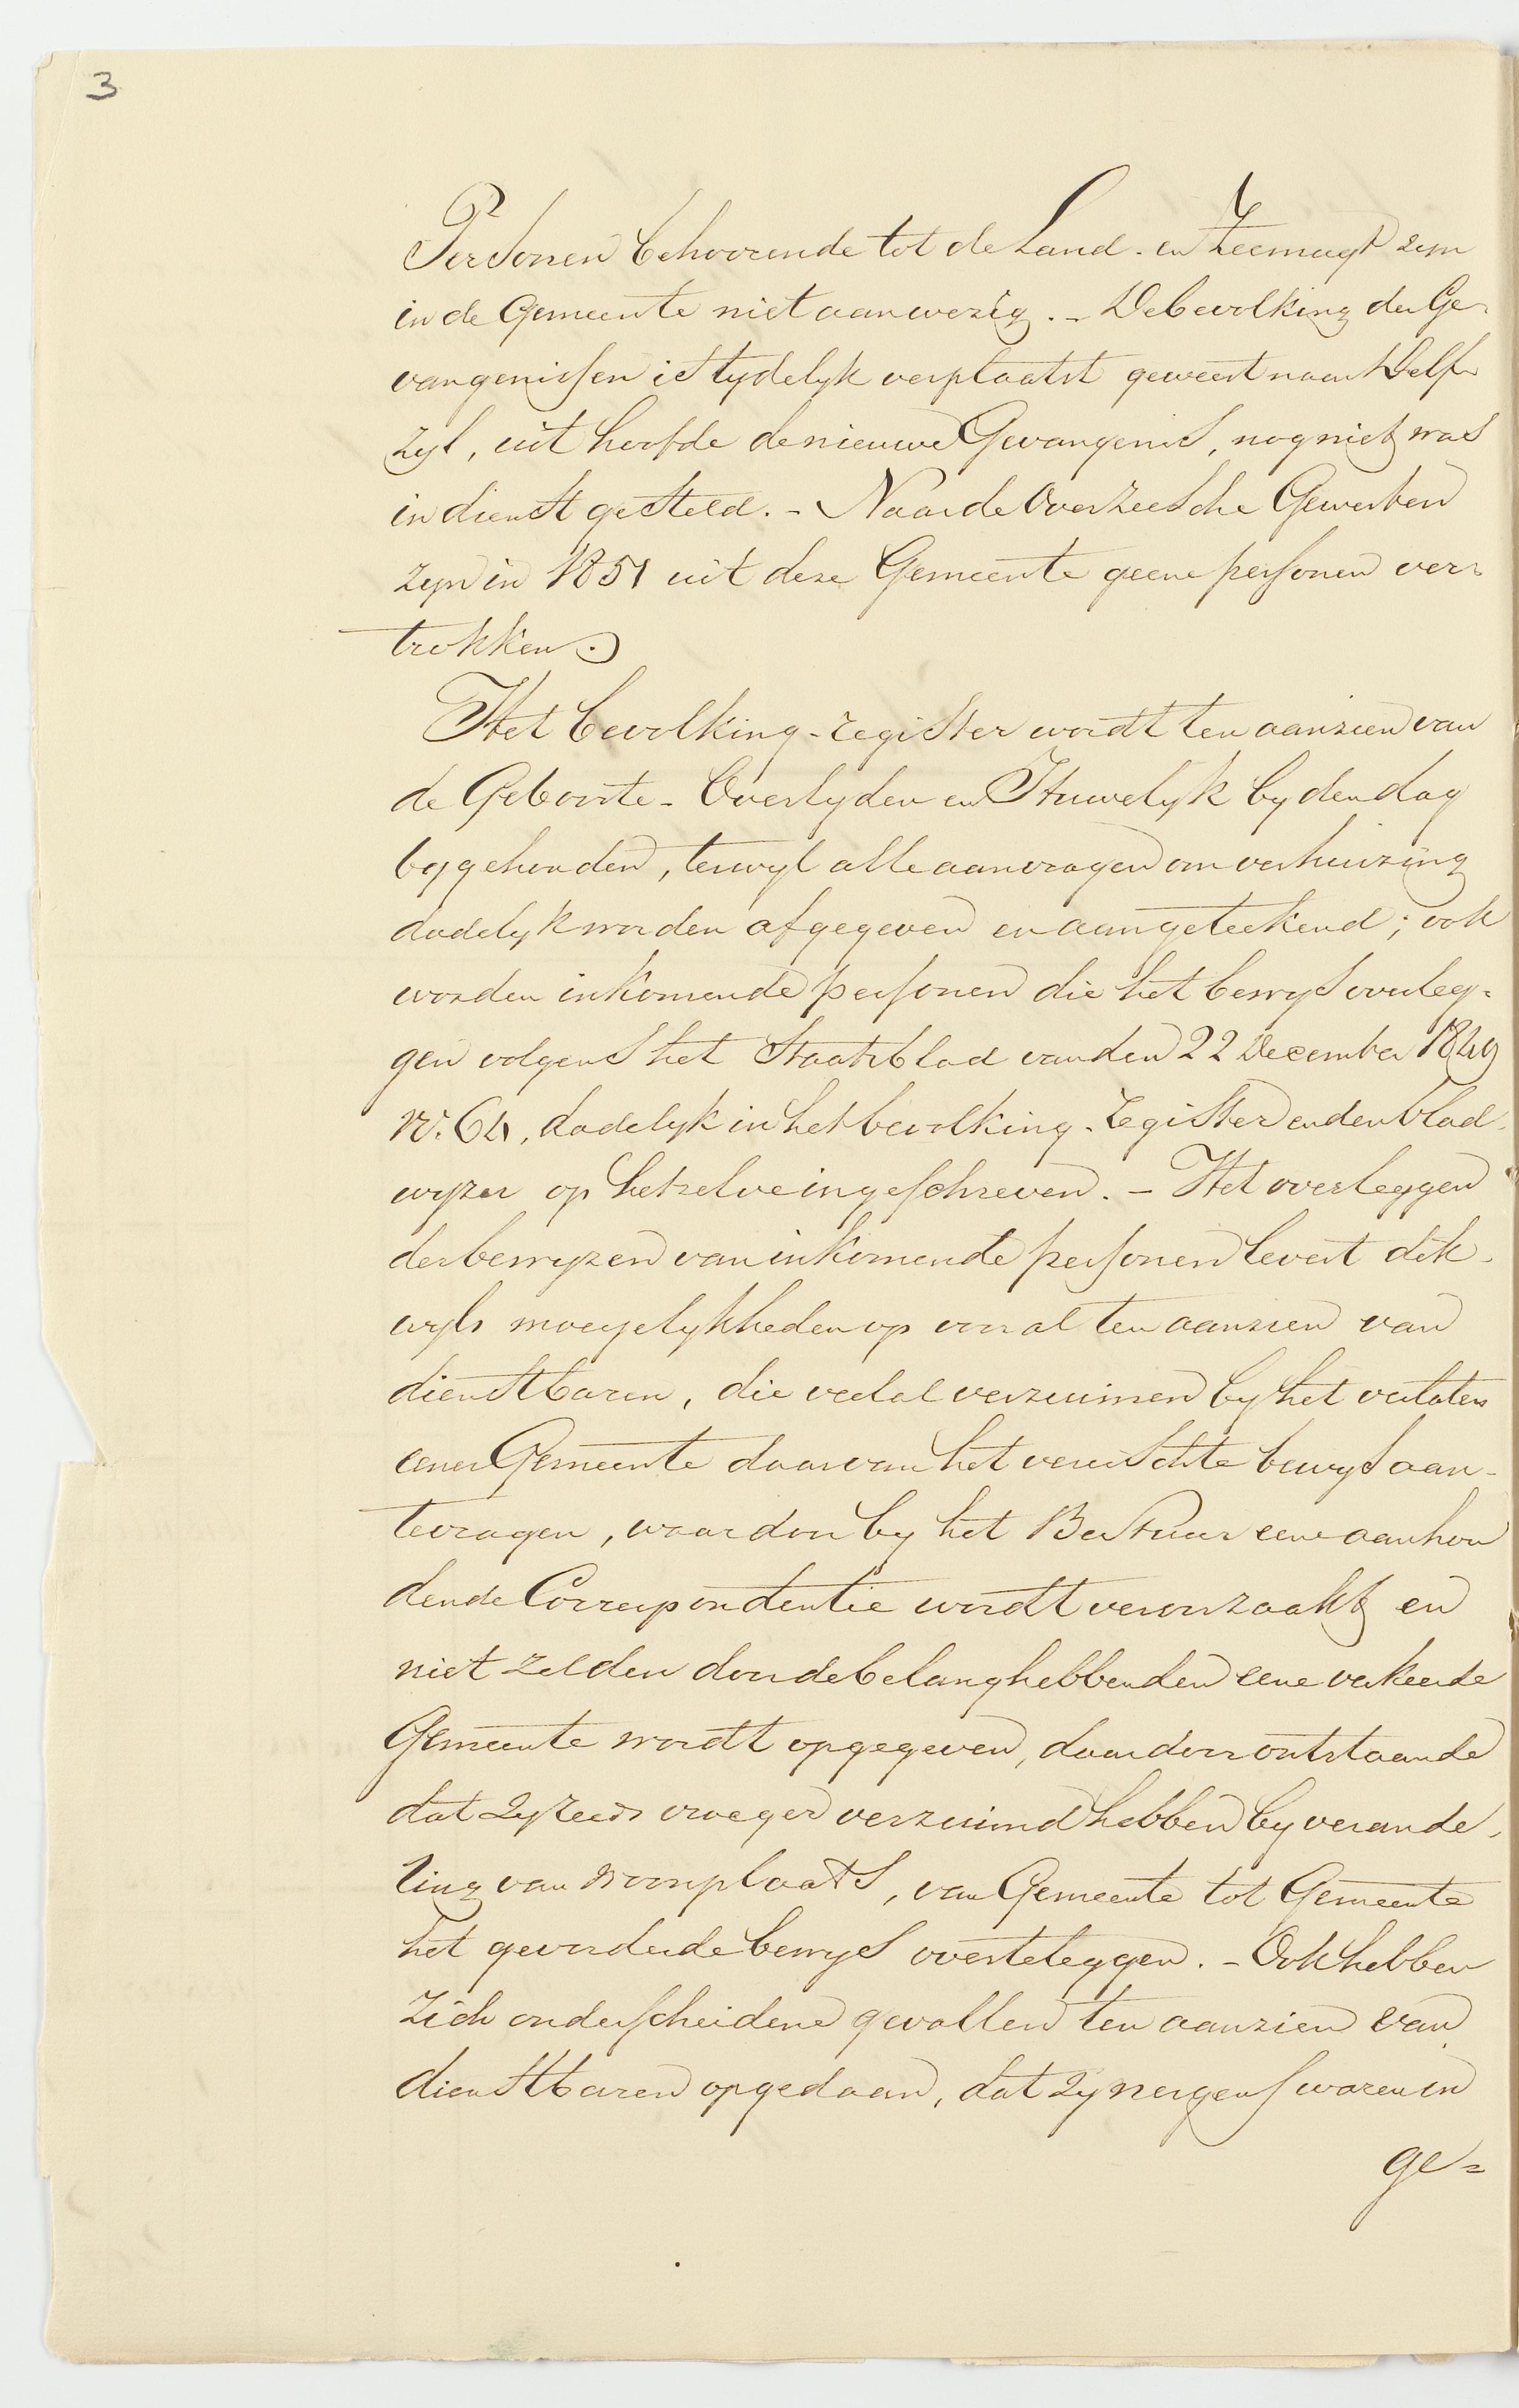 3
Personen behoorende tot de Land- en Zeemagt zyn
in de Gemeente niet aanwezig. - De bevolking der Ge-
vangenissen is tydelyk verplaatst geweest naar Delf-
zyl, uit hoofde de nieuwe Gevangenis, nog niet was
in dienst gesteld. - Naar de Overzeesche Gewesten
zyn in 1851 uit deze Gemeente geene personen ver-
trokken.
Het bevolking-register wordt ten aanzien van
de Geboorte- Overlyden en Huwelyk by den dag
bygehouden, terwyl alle aanvragen om verhuizing
dadelyk worden afgegeven en aangeteekend; ook
worden inkomende personen die het bewys overleg-
gen volgens het Staatsblad van den 22 December 1849
No. 64, dadelyk in het bevolking-register en den blad-
wyzer op hetzelve ingeschreven. - Het overleggen
der bewyzen van inkomende personen levert dik-
wyls moeyelykheden op vooral ten aanzien van
dienstbaren, die veelal verzuimen by het verlaten
eener Gemeente daarvan het vereischte bewys aan-
tevragen, waardoor by het Bestuur eene aanhou
dende Correspondentie wordt veroorzaakt en
niet zelden door de belanghebbenden eene verkeerde
Gemeente wordt opgegeven, daardoor ontstaande
dat zy reeds vroeger verzuimd hebben by verande-
ring van woonplaats, van Gemeente tot Gemeente
het gevorderde bewys overteleggen. - Ook hebben
zich onderscheidene gevallen ten aanzien van
dienstbaren opgedaan, dat zy nergens waren in
ge=